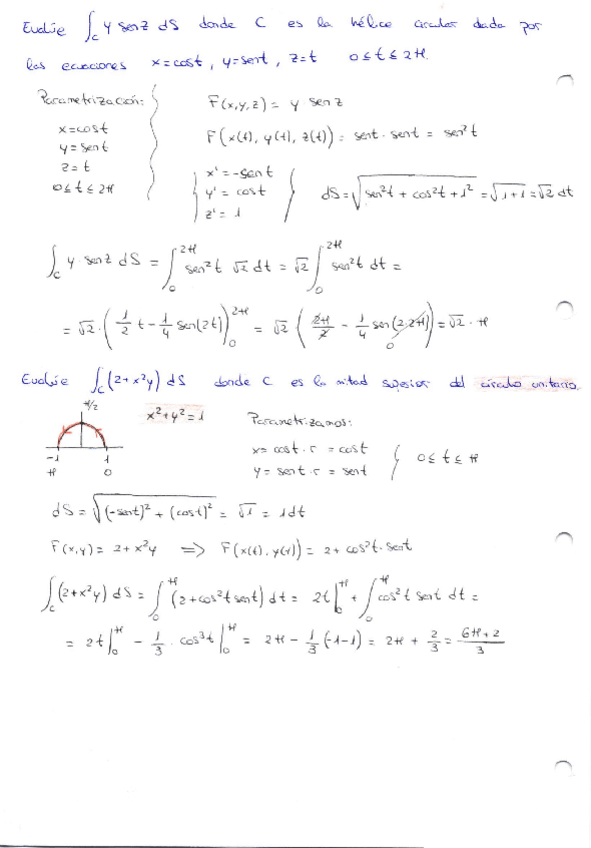 Evalúe ∫_C y senz dS donde C es la hélice circular dada por
las ecuaciones x=cost, y=sent, z=t 0≤t≤2π.
Parametrización:
x=cost
y=sent
z=t
0≤t≤2π
F(x,y,z) = y senz
F(x(t), y(t), z(t)) = sent · sent = sen²t
x' = -sen t
y' = cost
z' = 1
dS = √(sen²t + cos²t + 1²) = √(1+1) = √2 dt
∫_C y senz dS = ∫_0^{2π} sen²t √2 dt = √2 ∫_0^{2π} sen²t dt =
= √2 · (1/2 t - 1/4 sen(2t))_0^{2π} = √2 (2π/2 - 1/4 sen(2·2π)) = √2 · π
0
Evalúe ∫_C (2+x²y) dS donde C es la mitad superior del círculo unitario.
π/2
-1 1
π 0
x²+y²=1
Parametrizamos:
x= cost · r = cost
y= sent · r = sent
0≤t≤π
dS = √((-sent)² + (cost)²) = √1 = 1dt
F(x,y) = 2+x²y ⇒ F(x(t), y(t)) = 2+ cos²t · sent
∫_C (2+x²y) dS = ∫_0^π (2+cos²t sent) dt = 2t|_0^π + ∫_0^π cos²t sent dt =
= 2t|_0^π - 1/3 · cos³t|_0^π = 2π - 1/3 (-1-1) = 2π + 2/3 = (6π+2)/3